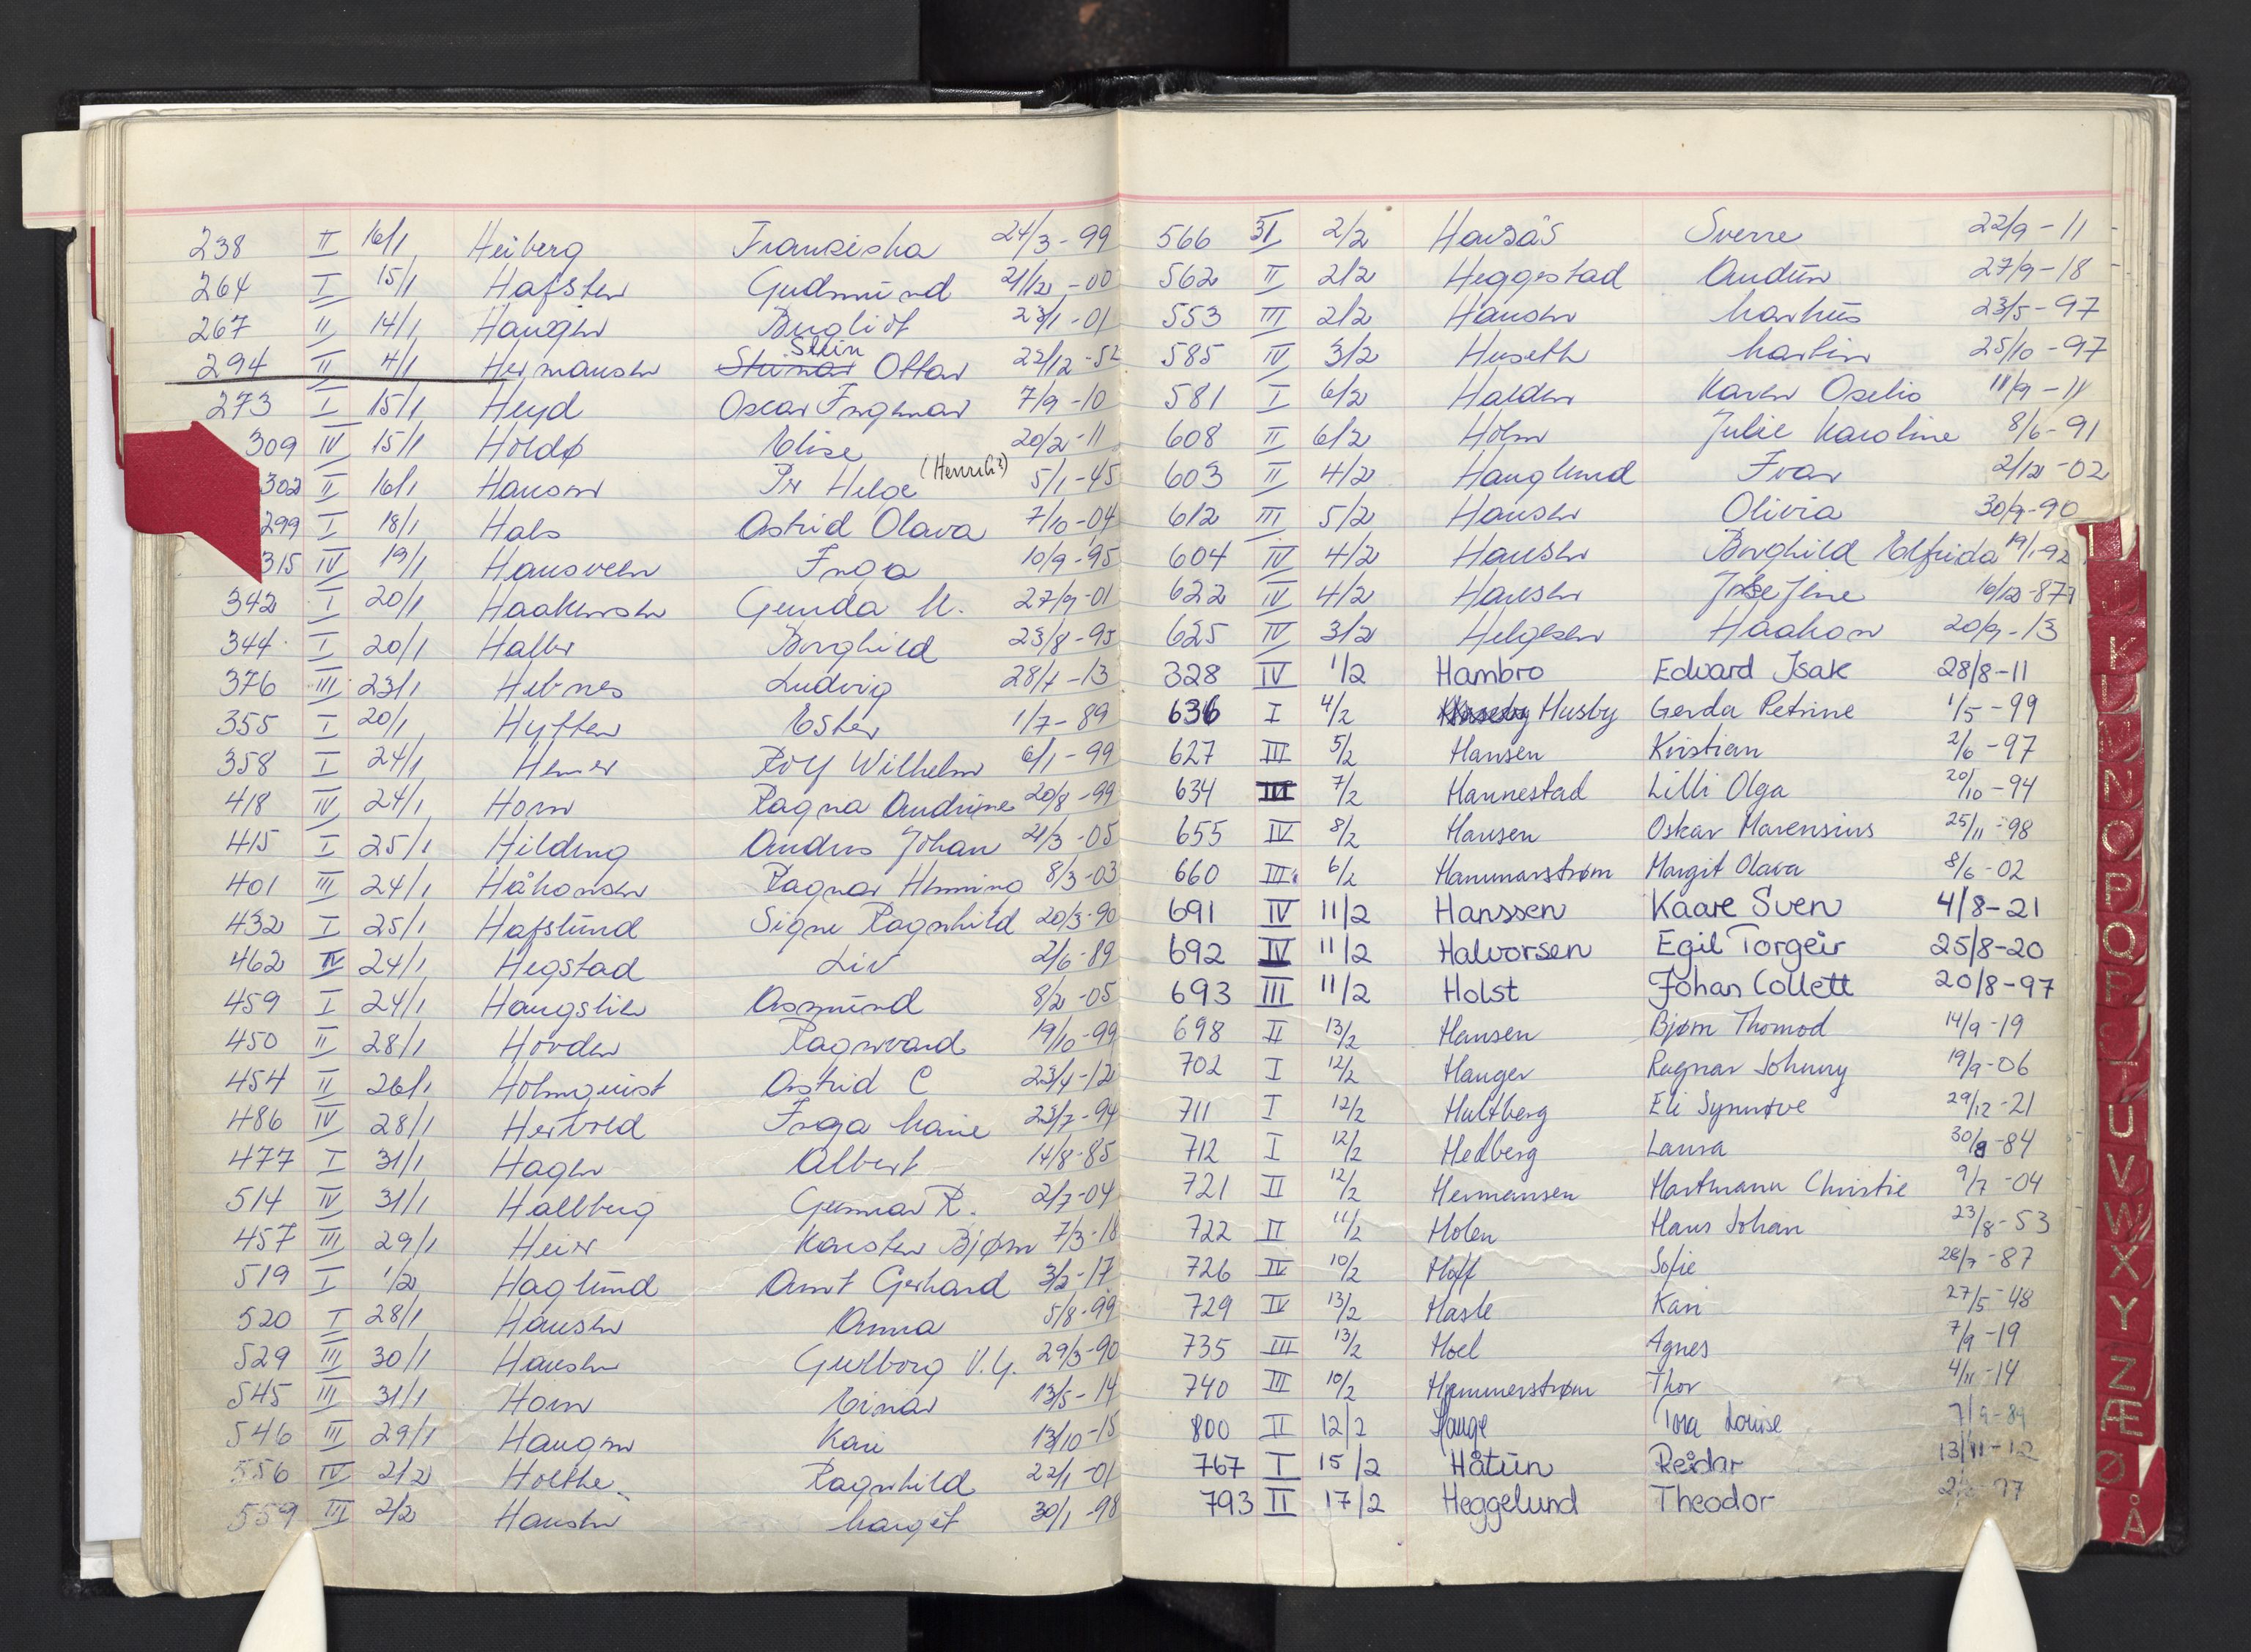 238 II 16/1 Heiberg Franziska 24/3-99
264 I 15/1 Hafsten Gudmund 21/12-00
267 II 14/1 Haugen Bergliot 23/1-01
294 II 4/1 Hermansen Steinar Stein Ottar 22/12-52
273 I 15/1 Heyd Oscar Ingemar 7/9-10
309 IV 15/1 Holdø Elise 20/2-11
302 II 16/1 Hanson Per Helge (Henrik?) 5/1-45
299 I 18/1 Hals Astrid Olava 7/10-04
315 IV 19/1 Hansveen Inga 10/9-95
342 I 20/1 Haakensen Gunda M. 27/9-01
344 I 20/1 Haller Borghild 23/8-95
376 III 23/1 Hebnes Ludvig 28/7-13
355 I 20/1 Hytten Ester 1/7-89
358 I 24/1 Hemer Rolf Wilhelm 6/1-99
418 IV 24/1 Horn Ragna Andrine 20/8-99
415 I 25/1 Hilding Anders Johan 21/3-05
401 III 24/1 Håkonsen Ragnar Henning 8/3-03
432 I 25/1 Hafslund Signe Ragnhild 20/3-90
462 IV 24/1 Hegstad Liv 2/6-89
459 I 24/1 Haugslien Asmund 8/2-05
450 II 28/1 Hovden Ragnvard 19/10-99
454 II 26/1 Holmquist Astrid C 23/4-12
486 IV 28/1 Hertvold Inga Marie 23/7-94
477 I 31/1 Hagen Albert 14/8-85
514 IV 31/1 Hallberg Gunnar R. 2/7-04
457 III 29/1 Heier Karsten Bjørn 7/3-18
519 I 1/2 Haglund Arnt Gerhard 3/2-17
520 I 28/1 Hansen Anna 5/8-99
529 III 30/1 Hansen Gulborg V.G. 29/3-90
545 III 31/1 Horn Einar 13/5-14
546 III 29/1 Haugen Kari 13/10-15
556 IV 2/2 Holthe Ragnhild 22/1-01
559 III 2/2 Hansen Margit 30/1-98
566 2/2 Hausås Sverre 22/9-11
562 II 2/2 Heggestad Audun 27/9-18
553 III 2/2 Hansen Markus 23/5-97
585 IV 3/2 Huseth Martin 25/10-97
581 I 6/2 Halden Karen Oselio 11/9-11
608 II 6/2 Holm Julie Karoline 8/6-91
603 II 4/2 Hauglund Ivar 2/12-02
612 III 5/2 Hansen Olivia 30/9-90
604 IV 4/2 Hansen Borghild Elfrida 19/1-92
622 IV 4/2 Hansen Josefine 16/12-87
625 IV 3/2 Helgesen Haakon 20/9-13
328 IV 1/2 Hambro Edvard Isak 28/8-11
636 I 4/2 Husby Gerda Petrine 1/5-99
627 III 5/2 Hansen Kristian 2/6-97
634 III 7/2 Hannestad Lilli Olga 20/10-94
655 IV 8/2 Hansen Oskar Marensius 25/11-98
660 III 6/2 Hammarstrøm Margit Olava 8/6-02
691 IV 11/2 Hanssen Kaare Sven 4/8-21
692 IV 11/2 Halvorsen Egil Torgeir 25/8-20
693 III 11/2 Holst Johan Collett 20/8-97
698 II 13/2 Hansen Bjørn Thomod 14/9-19
702 I 12/2 Hauger Ragnar Johnny 19/9-06
711 I 12/2 Hultberg Eli Synnøve 29/12-21
712 I 12/2 Hedberg Laura 30/8-84
721 II 12/2 Hermansen Hartmann Christie 9/7-04
722 II 11/2 Holen Hans Johan 23/8-53
726 IV 10/2 Hoff Sofie 28/7-87
729 IV 13/2 Hasle Kari 27/5-48
735 III 13/2 Hoel Agnes 7/9-19
740 III 10/2 Hammerstrøm Thor 4/11-14
800 II 12/2 Hauge Tora Louise 7/9-89
767 I 15/2 Håtun Reidar 13/11-12
793 II 17/2 Heggelund Theodor
K
N
O
P
Q
R
S
T
U
V
W
X
Y
Z
Æ
Ø
Å